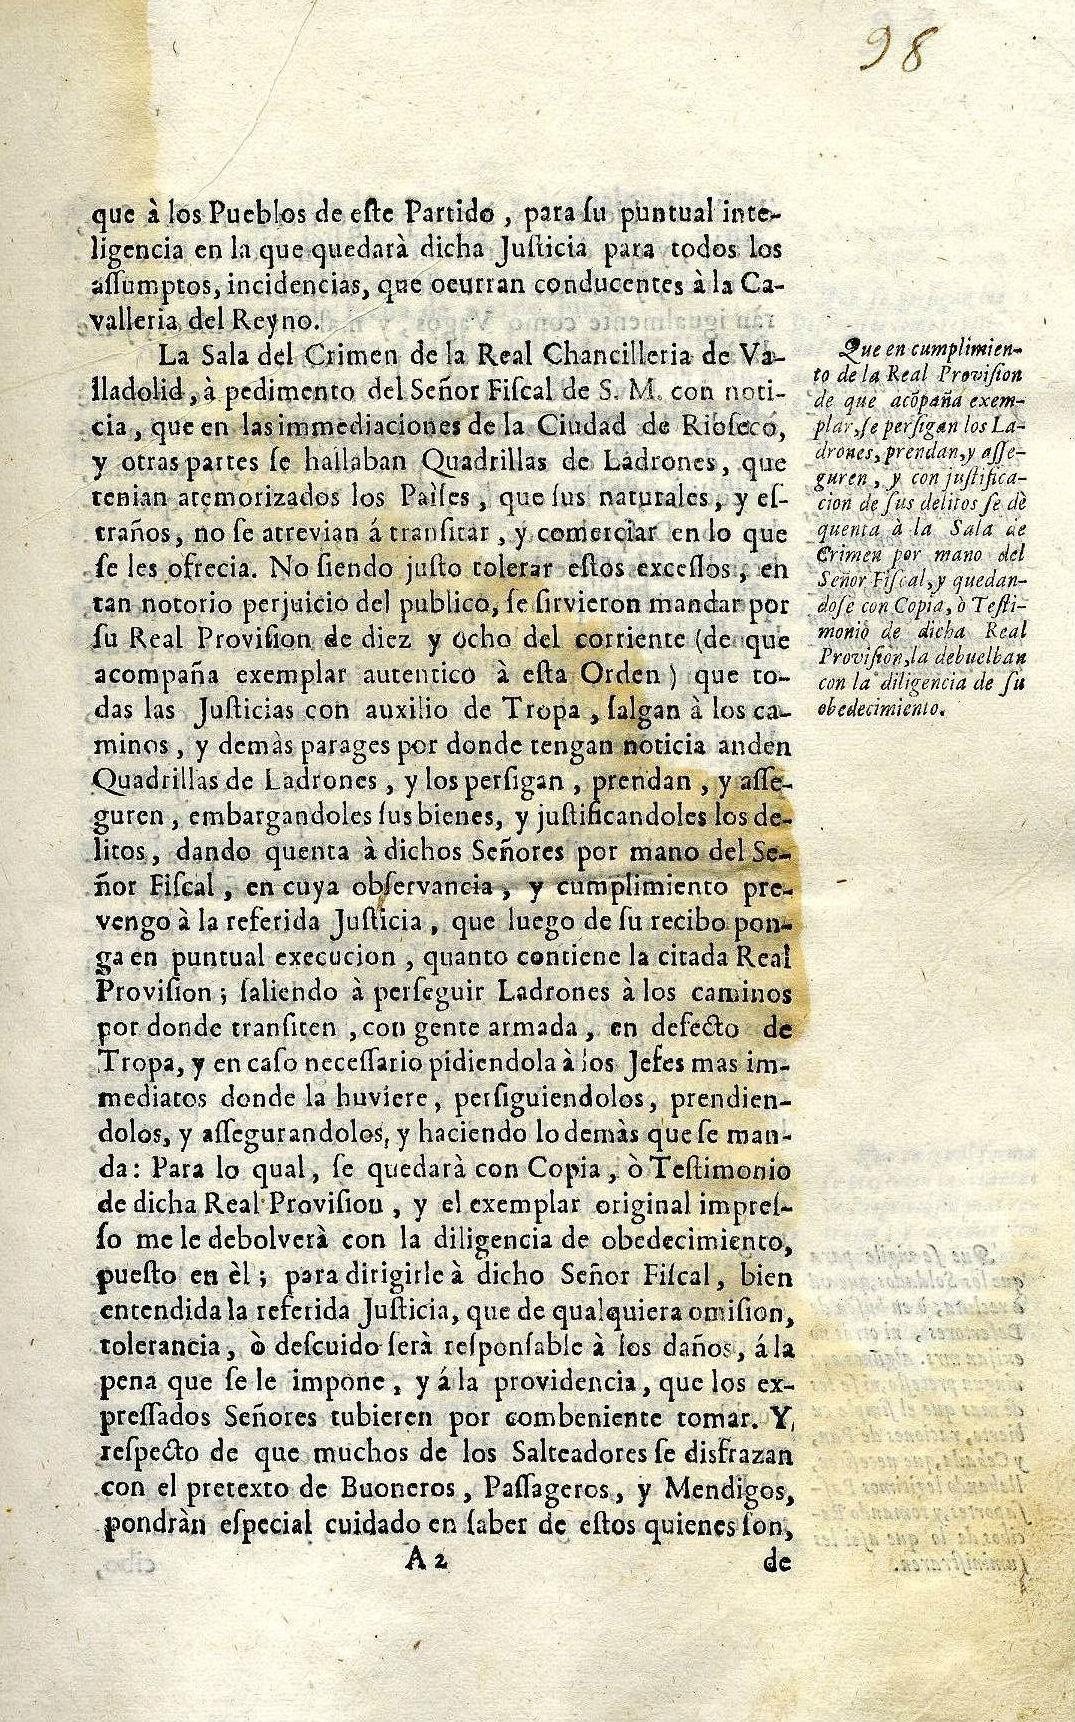 98
que à los Pueblos de eſte Partido, para ſu puntual inte-
ligencia en la que quedarà dicha Juſticia para todos los
aſſumptos, incidencias, que ocurran conducentes à la Ca-
valleria del Reyno.
La Sala del Crimen de la Real Chancilleria de Va-
lladolid, à pedimento del Señor Fiſcal de S. M. con noti-
cia, que en las immediaciones de la Ciudad de Rioſeco,
y otras partes ſe hallaban Quadrillas de Ladrones, que
tenian atemorizados los Païſes, que ſus naturales, y eſ-
traños, no ſe atrevian á tranſitar, y comerciar en lo que
ſe les ofrecia. No ſiendo juſto tolerar eſtos exceſſos, en
tan notorio perjuicio del publico, ſe ſirvieron mandar por
ſu Real Proviſion de diez y ocho del corriente (de que
acompaña exemplar autentico à eſta Orden) que to-
das las Juſticias con auxilio de Tropa, ſalgan à los ca-
minos, y demàs parages por donde tengan noticia anden
Quadrillas de Ladrones, y los perſigan, prendan, y aſſe-
guren, embargandoles ſus bienes, y juſtificandoles los de-
litos, dando quenta à dichos Señores por mano del Se-
ñor Fiſcal, en cuya obſervancia, y cumplimiento pre-
vengo à la referida Juſticia, que luego de ſu recibo pon-
ga en puntual execucion, quanto contiene la citada Real
Proviſion; ſaliendo à perſeguir Ladrones à los caminos
por donde tranſiten, con gente armada, en defecto de
Tropa, y en caſo neceſſario pidiendola à los Jefes mas im-
mediatos donde la huviere, perſiguiendolos, prendien-
dolos, y aſſegurandolos, y haciendo lo demàs que ſe man-
da: Para lo qual, ſe quedarà con Copia, ò Teſtimonio
de dicha Real Proviſion, y el exemplar original impreſ-
ſo me le debolverà con la diligencia de obedecimiento,
pueſto en èl; para dirigirle à dicho Señor Fiſcal, bien
entendida la referida Juſticia, que de qualquiera omiſion,
tolerancia, ò deſcuido ſerà reſponſable à los daños, á la
pena que ſe le impone, y á la providencia, que los ex-
preſſados Señores tubieren por combeniente tomar. Y,
reſpecto de que muchos de los Salteadores ſe disfrazan
con el pretexto de Buoneros, Paſſageros, y Mendigos,
pondràn eſpecial cuidado en ſaber de eſtos quienes ſon,
A 2
de
Que en cumplimien-
to de la Real Proviſion
de que acõpaña exem-
plar, ſe perſigan los La-
drones, prendan, y aſſe-
guren, y con juſtifica-
cion de ſus delitos ſe dè
quenta à la Sala de
Crimen por mano del
Señor Fiſcal, y quedan-
doſe con Copia, ò Teſti-
monio de dicha Real
Proviſion, la debuelban
con la diligencia de ſu
obedecimiento.